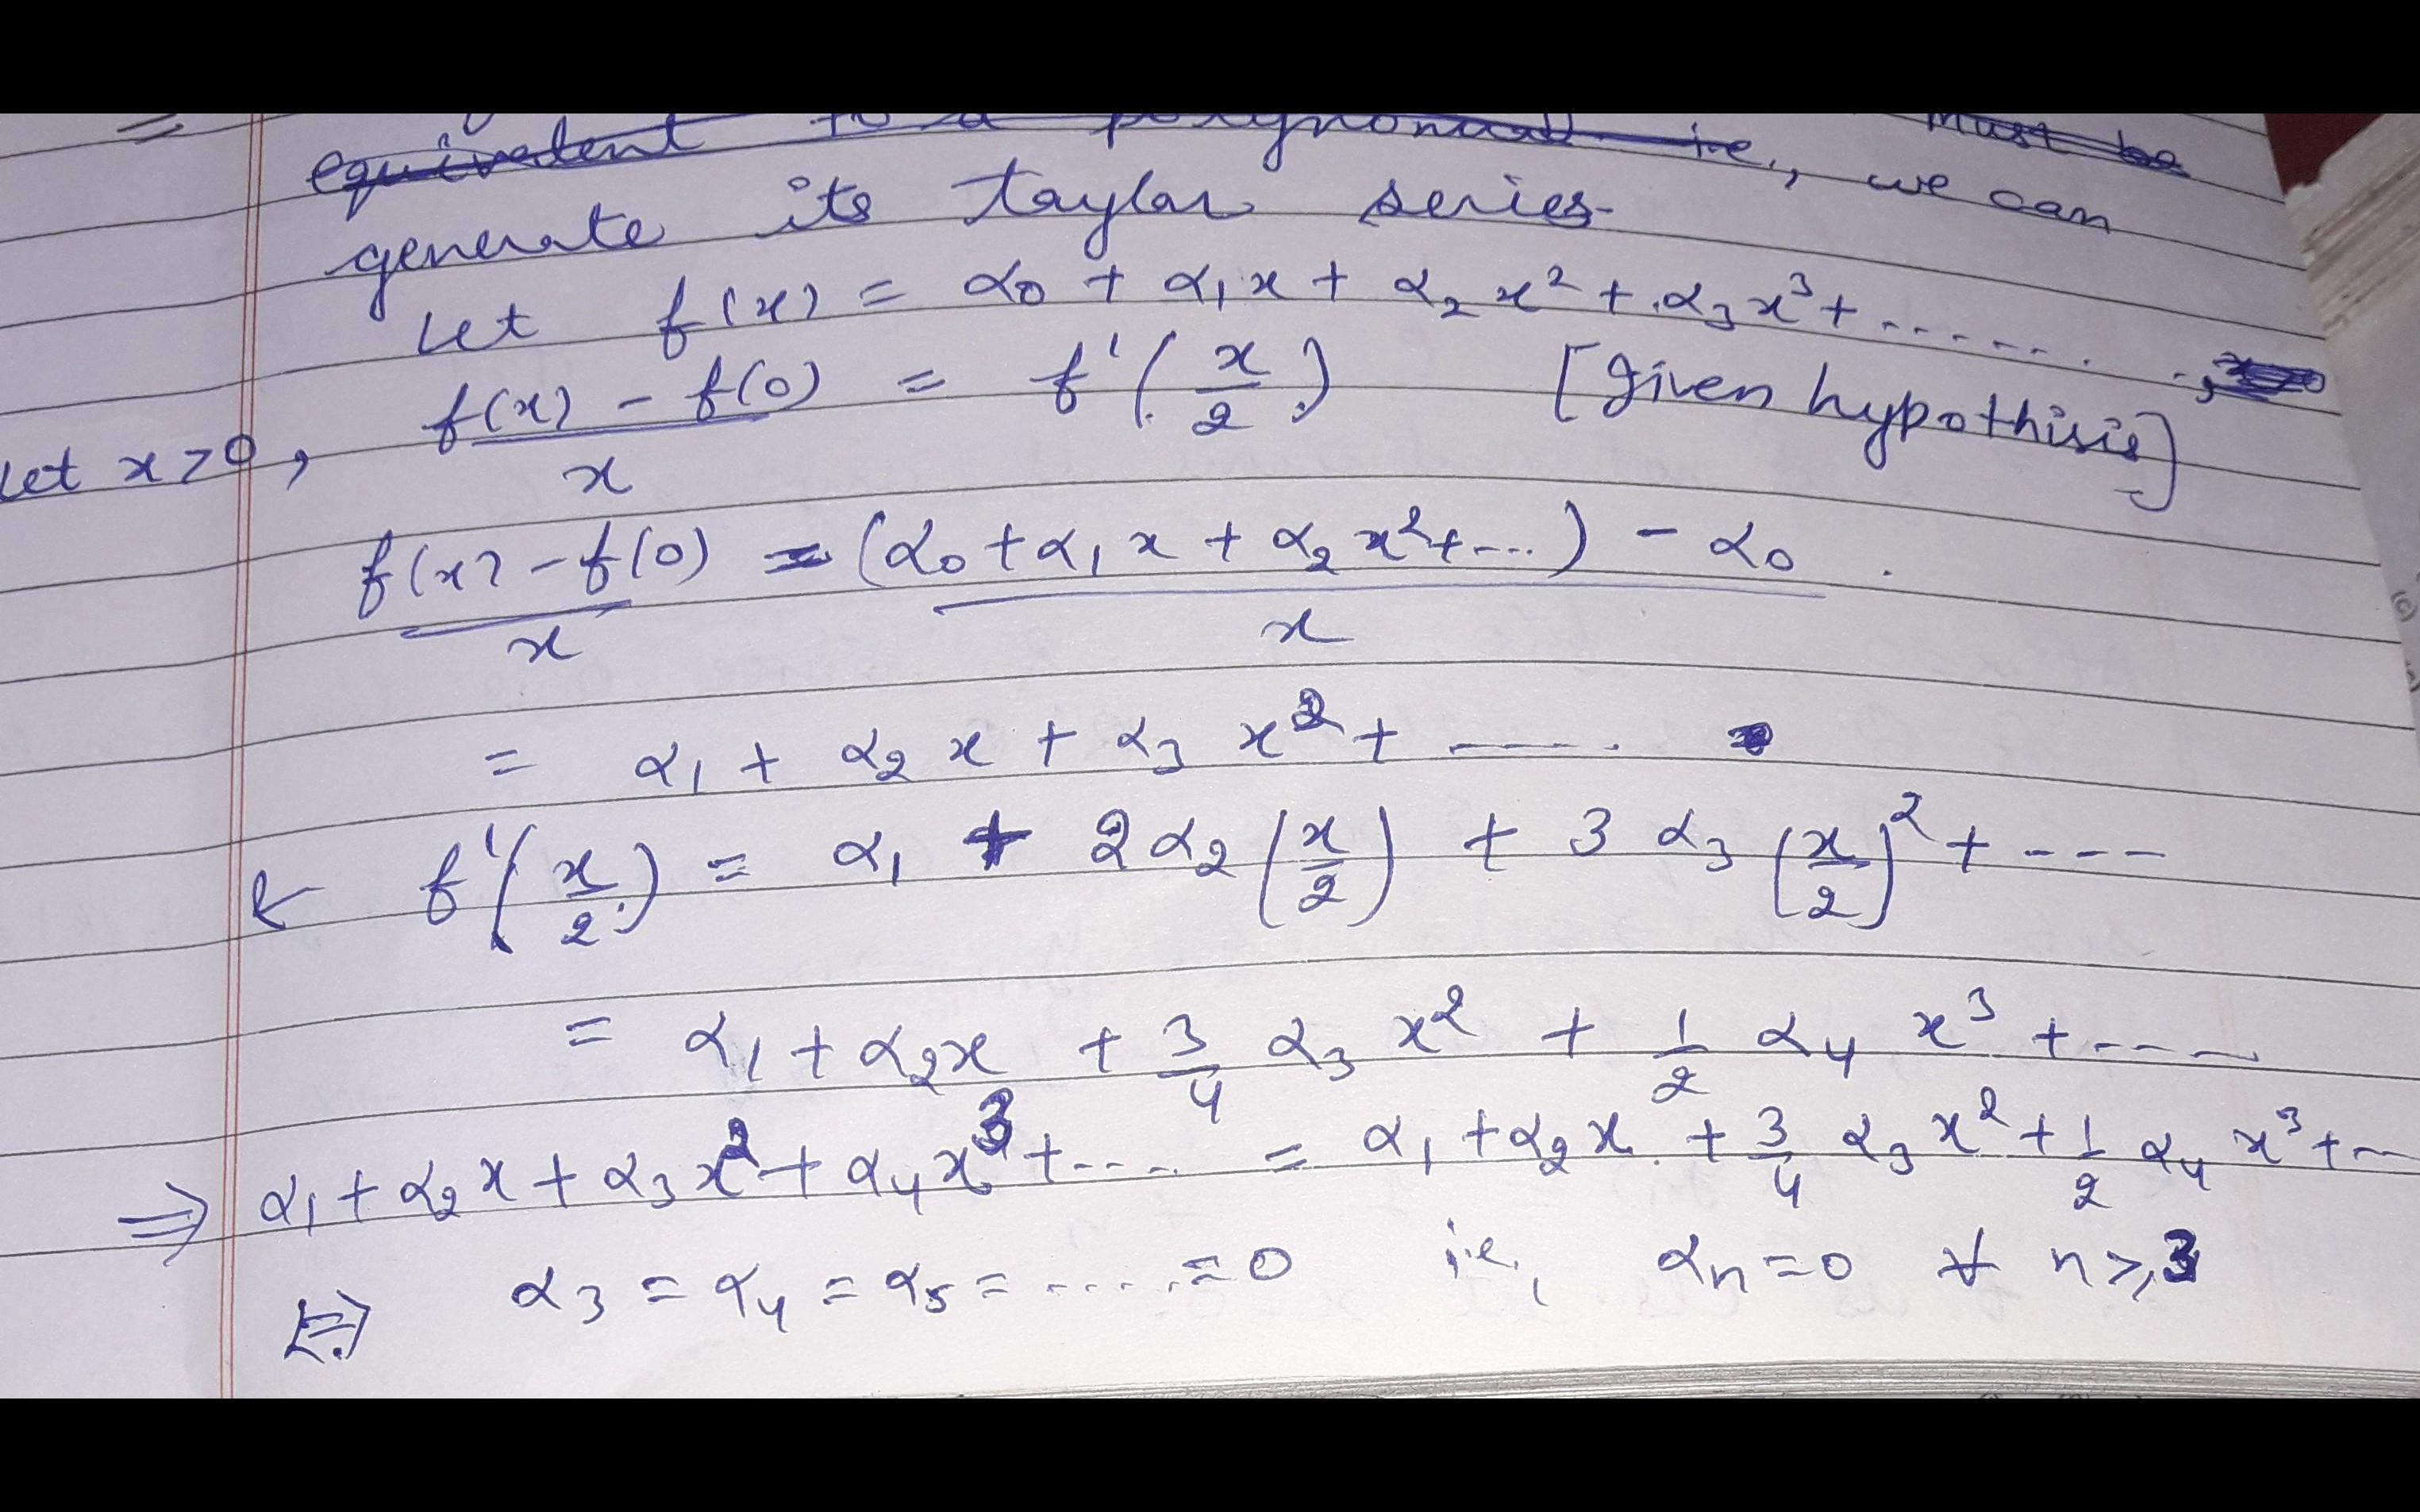 equivalent to a polynomial i.e., we can must be
generate its taylor series.
Let f(x) = α₀ + α₁x + α₂x² + α₃x³ + .......
Let x>0, (f(x) - f(0))/x = f'(x/2) [Given hypothisis]
(f(x) - f(0))/x = ((α₀ + α₁x + α₂x² + ...) - α₀)/x
= α₁ + α₂x + α₃x² + ....
& f'(x/2) = α₁ + 2α₂(x/2) + 3α₃(x/2)² + ---
= α₁ + α₂x + 3/4 α₃x² + 1/2 α₄x³ + ----
⇒ α₁ + α₂x + α₃x² + α₄x³ + .... = α₁ + α₂x + 3/4 α₃x² + 1/2 α₄x³ + --
⇒ α₃ = α₄ = α₅ = ..... = 0 i.e., αₙ = 0 ∀ n ≥ 3